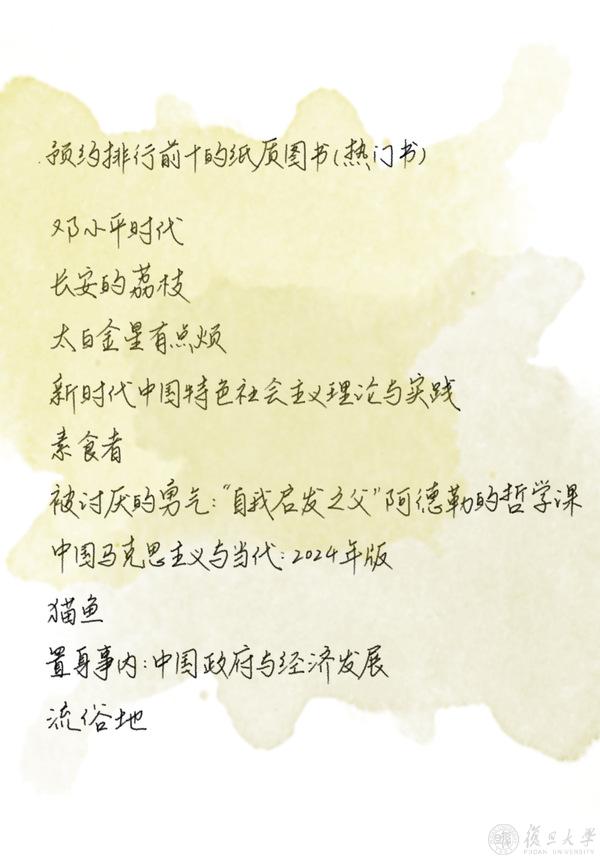 预约排行前十的纸质图书(热门书)
邓小平时代
长安的荔枝
太白金星有点烦
新时代中国特色社会主义理论与实践
素食者
被讨厌的勇气:"自我启发之父"阿德勒的哲学课
中国马克思主义与当代:2024年版
猫鱼
置身事内:中国政府与经济发展
流俗地
復旦大學
FUDAN UNIVERSITY